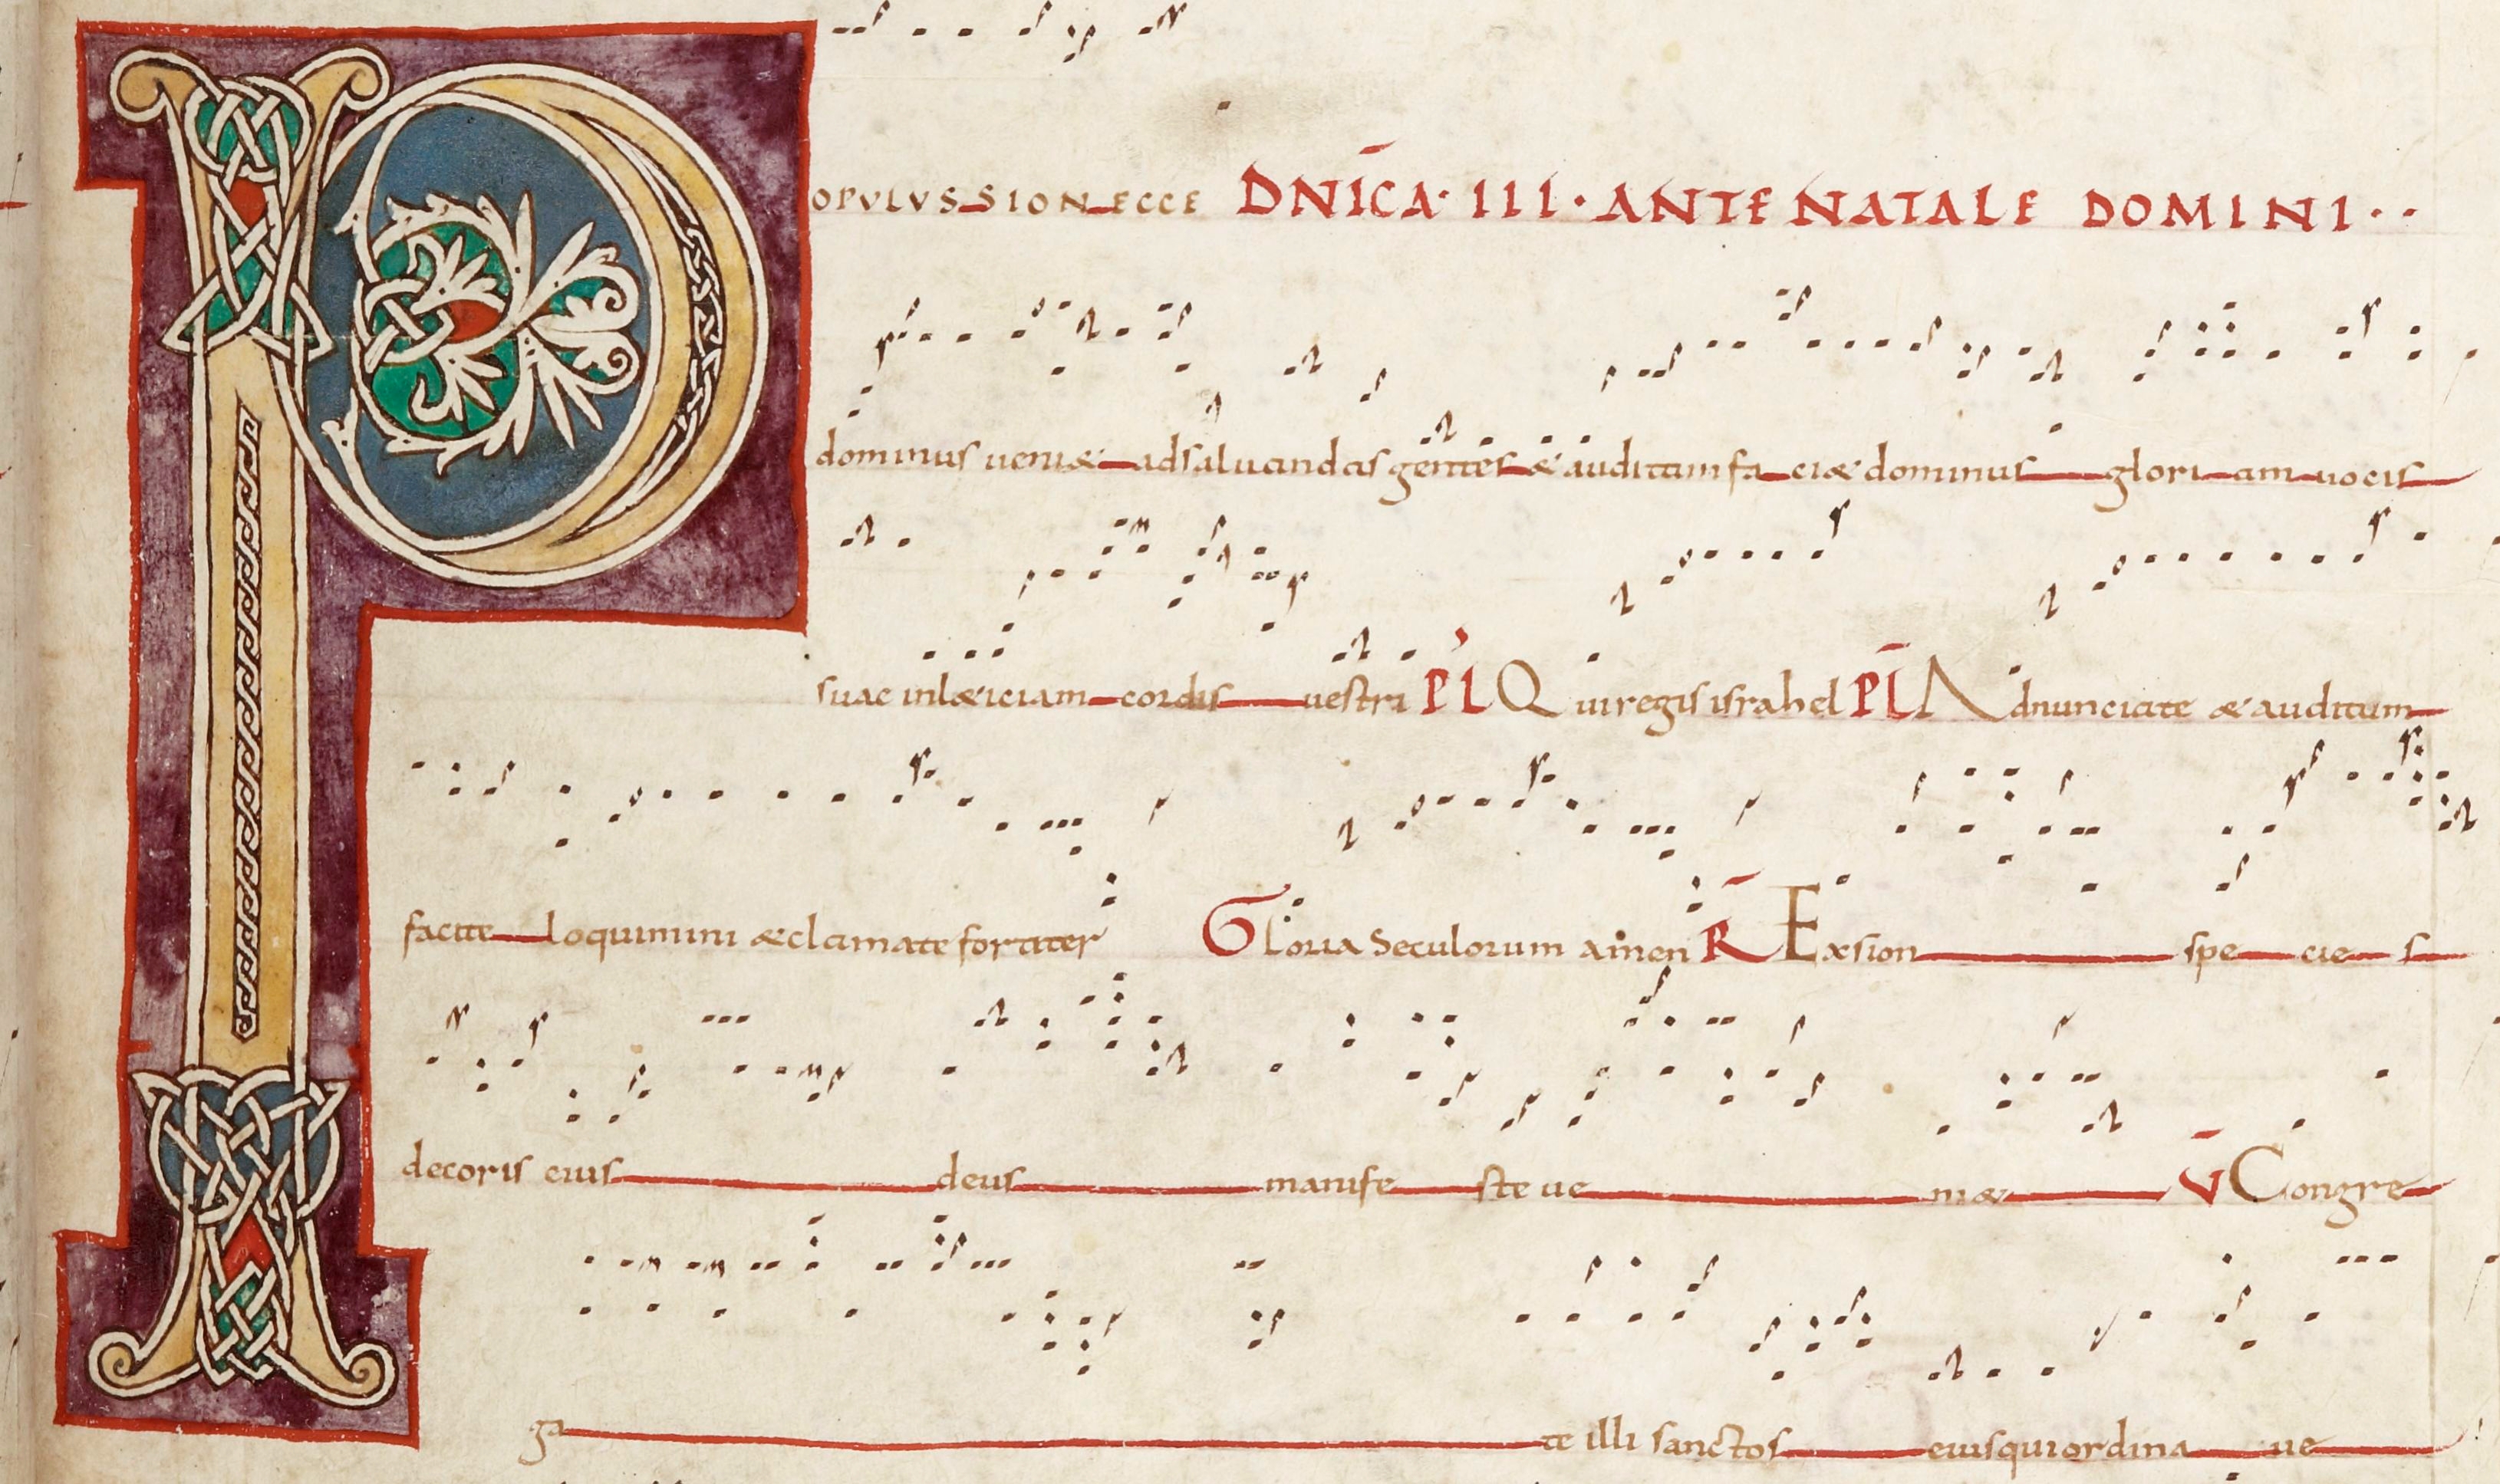 POPULUS SION ECCE DNICA · III · ANTE NATALE DOMINI · ·
dominus veniæ ad salvandas gentes & auditam faciæ dominus gloriam vocis
suae in læticiam cordis vestri PL Qui regis israhel PL Adnunciate & auditum
facite loquimini & clamate fortiter Gloria Seculorum amen R Ex sion species
decoris eius deus manifeste veniæ V Congre
gate illi sanctos eius qui ordinave